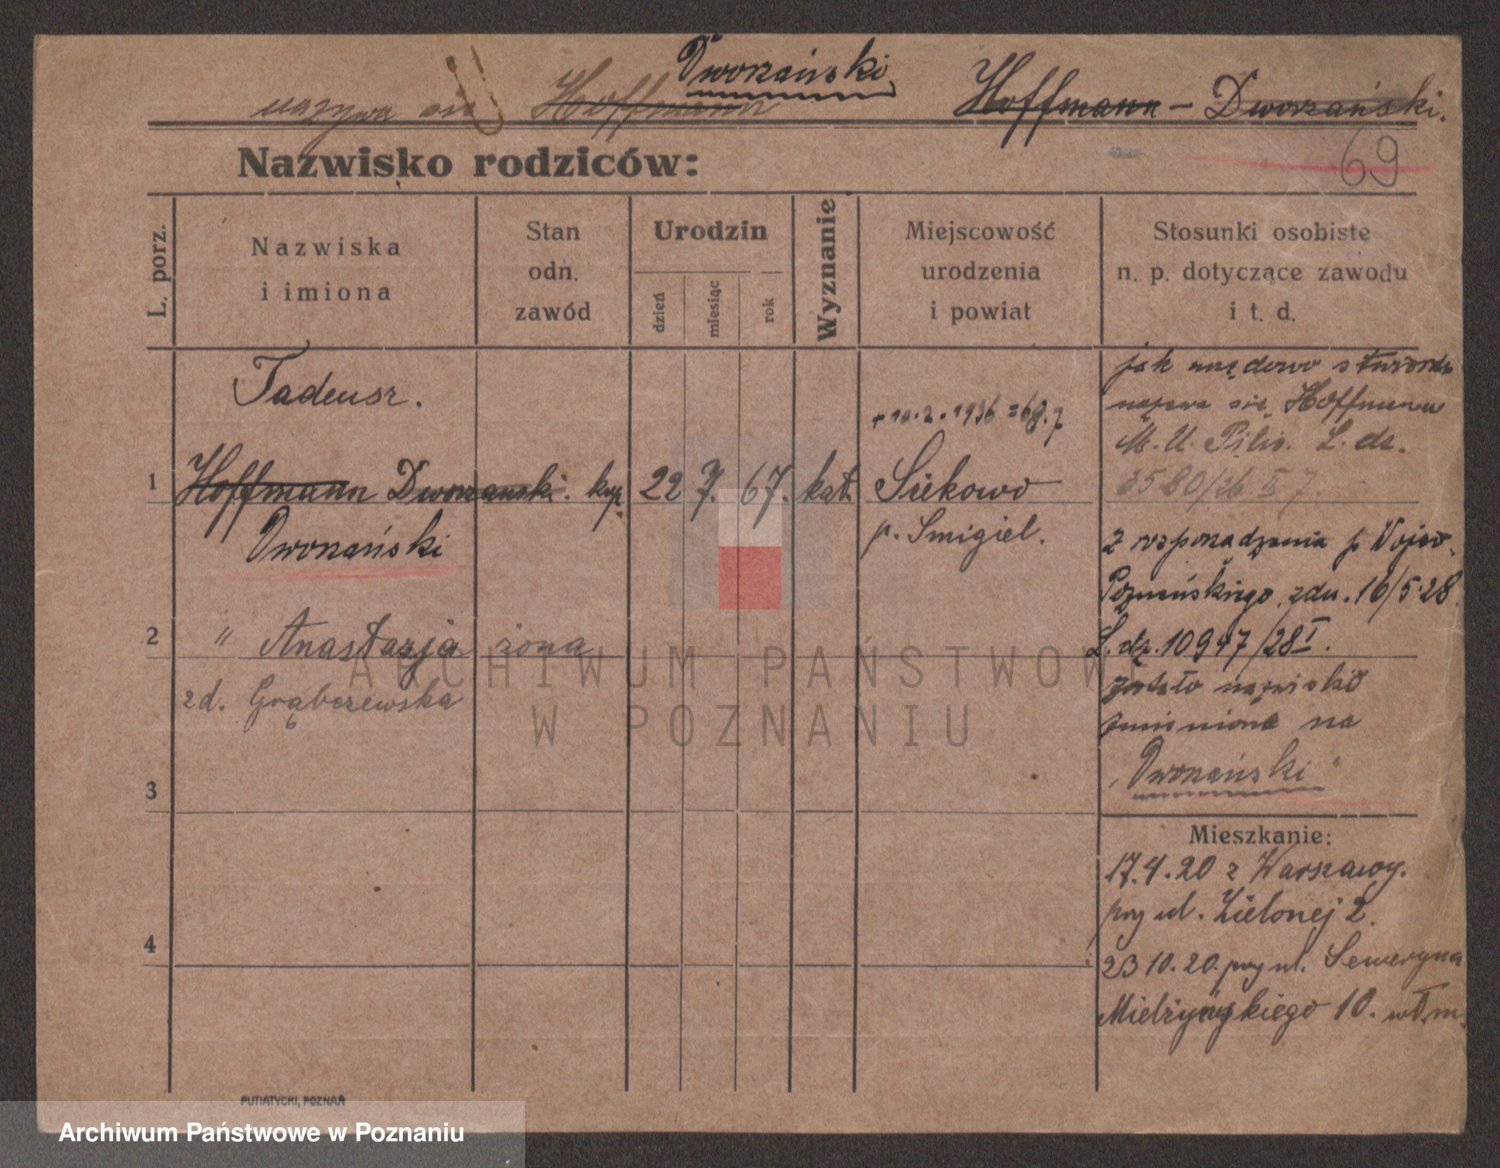 Dworzański
nazywa się Hoffmann Hoffmann - Dworzański.
Nazwisko rodziców: 69
L. porz.
Nazwiska
i imiona
Stan
odn.
zawód
Urodzin
dzień
miesiąc
rok
Wyznanie
Miejscowość
urodzenia
i powiat
Stosunki osobiste
n. p. dotyczące zawodu
i t. d.
Tadeusz.
1 Hoffmann Dworzanski. kup. 22 7. 67. kat. Siekowo
Dworzański p. Smigiel.
+ 10.2.1936 =
jak urzędowo stwierdz.
nazywa się Hoffmann
L. dz.
3580/36 II 7
z rozporządzenia p. Wojew.
Poznańskiego zdn. 16/5.28.
L. dz. 10947/28 I.
zostało nazwisko
zmienione na
„Dworzański"
2 " Anastazja żona
zd. Grąbczewska
3
4
Mieszkanie:
17.4.20 z Warszawy.
przy ul. Zielonej 2.
23 10.20. przy ul. Seweryna
Mielżyńskiego 10. wł. m.
PUTIATYCKI, POZNAŃ
ARCHIWUM PAŃSTWOWE
W POZNANIU
Archiwum Państwowe w Poznaniu